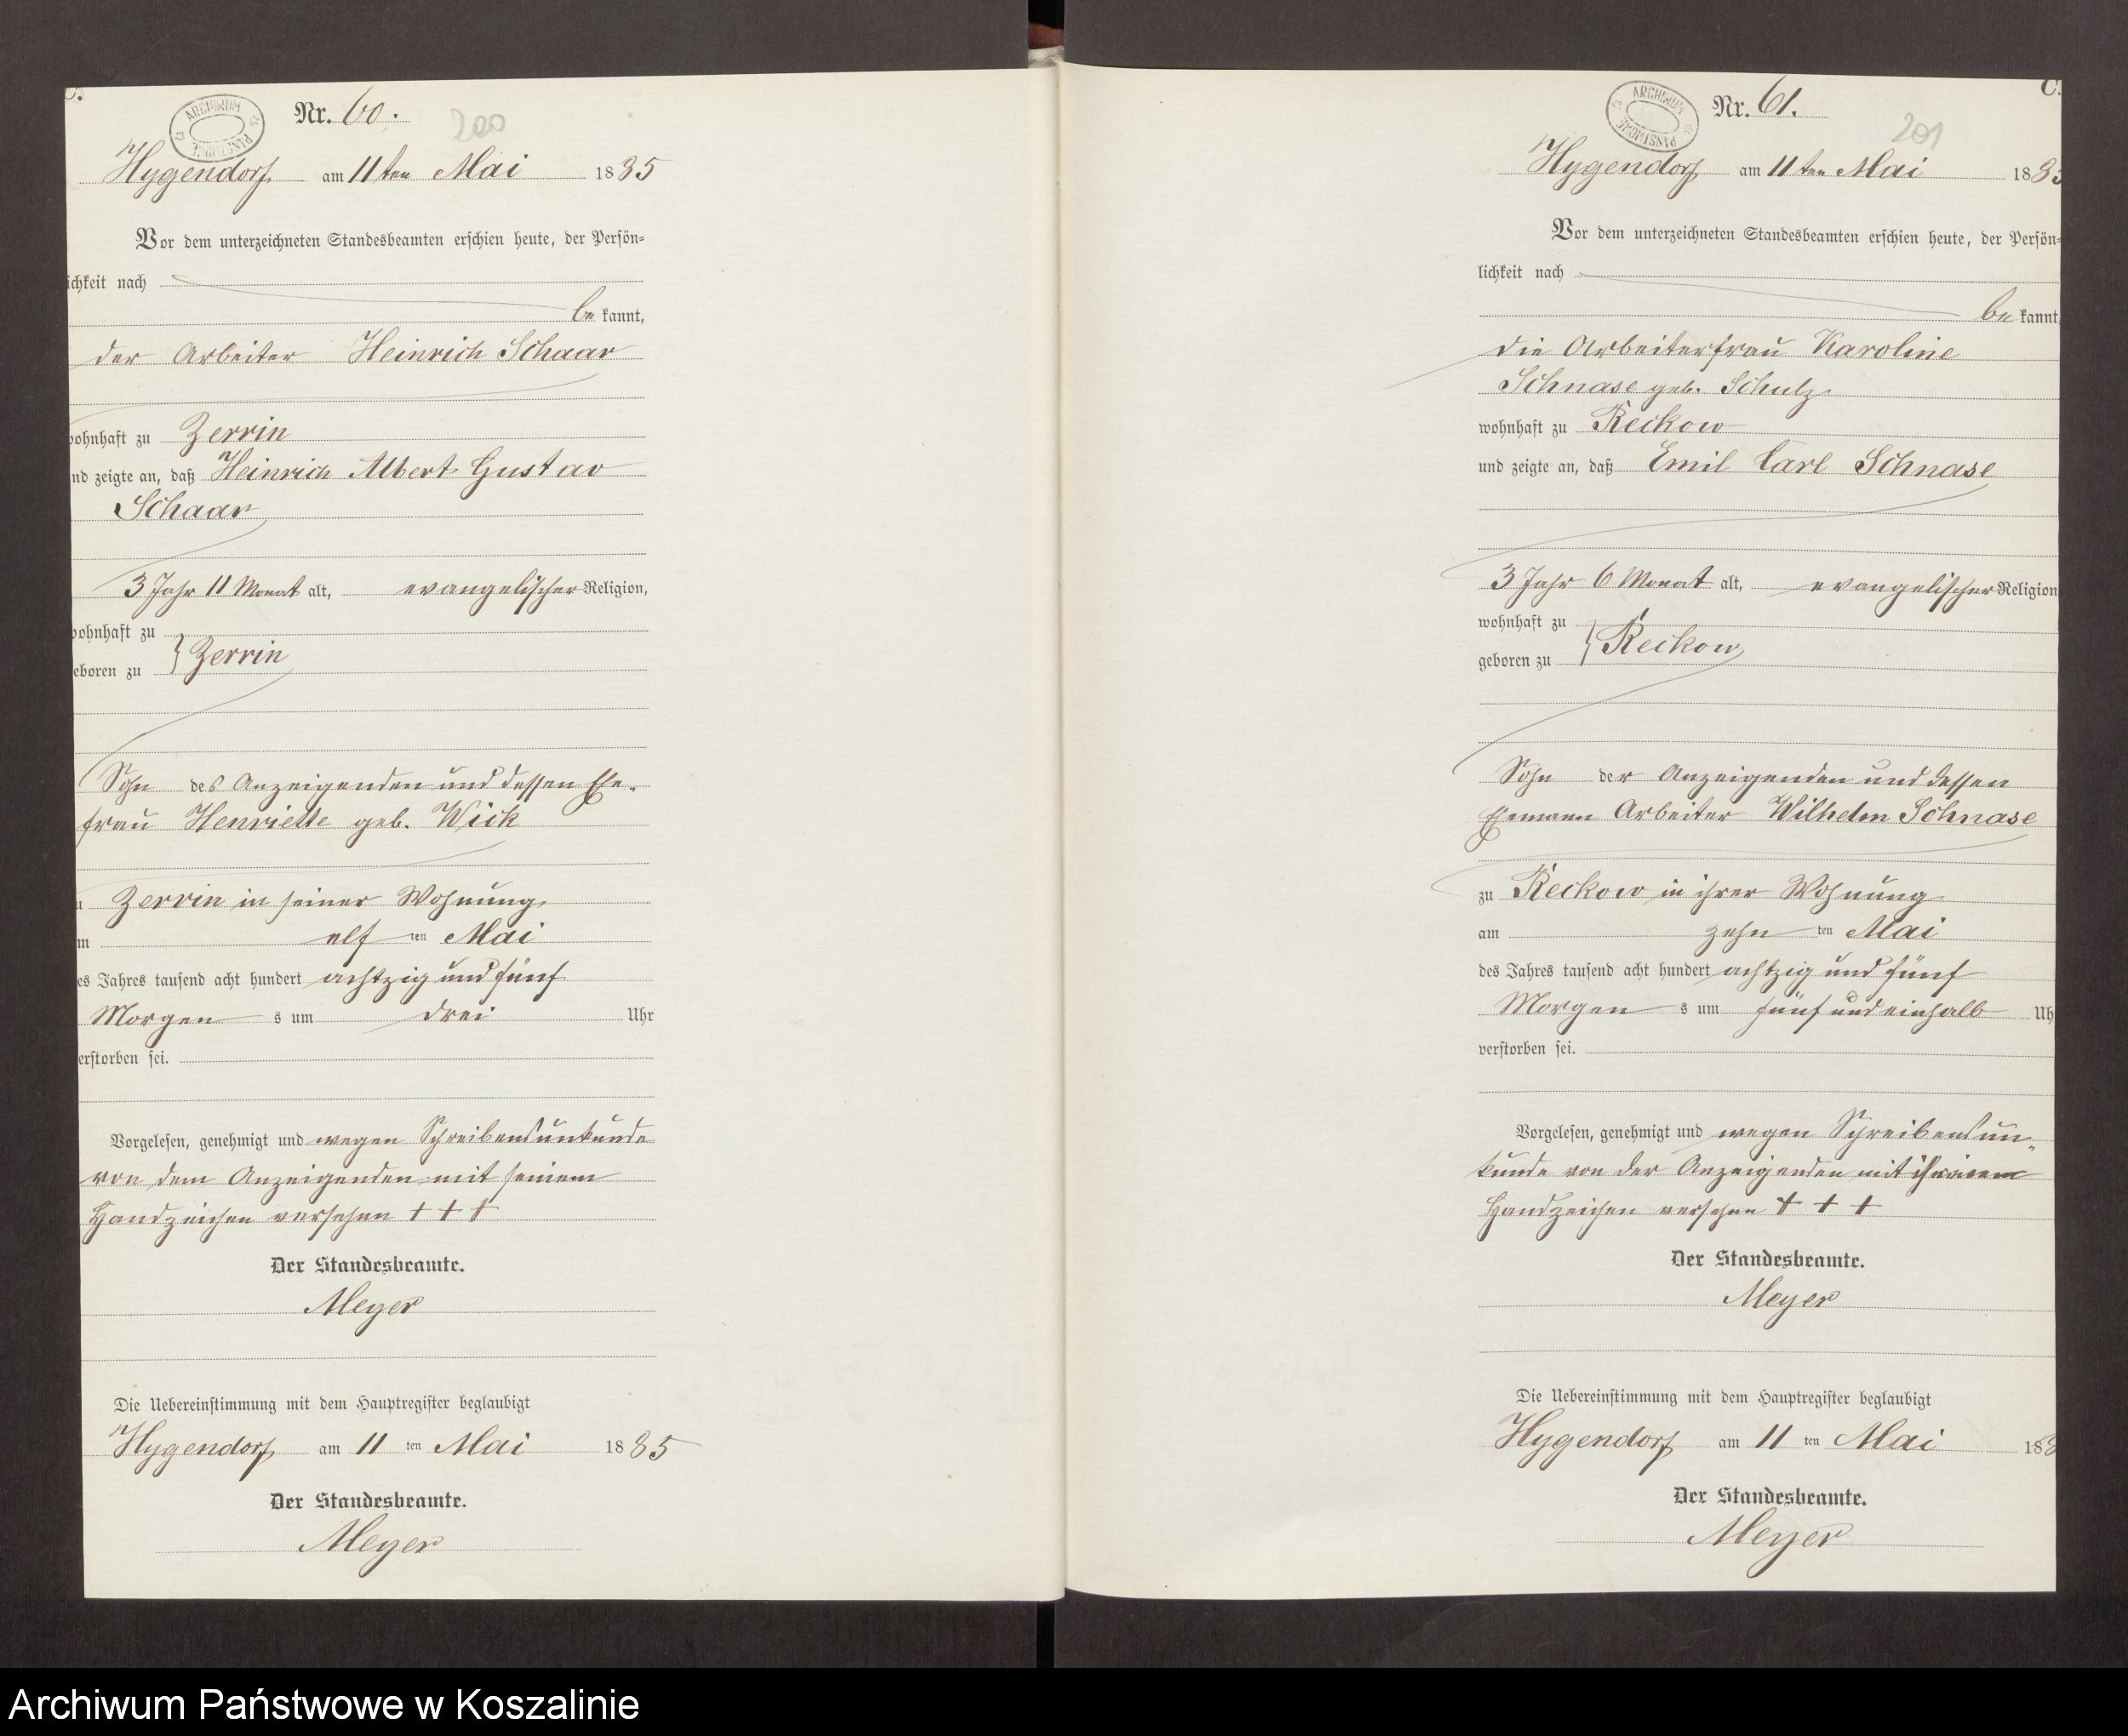 C.
ARCHIWUM PAŃSTWOWE
Nr. 60.
200
Hygendorf am 11ten Mai 1885
Vor dem unterzeichneten Standesbeamten erschien heute, der Persön-
ichkeit nach
be kannt,
der Arbeiter Heinrich Schaar
wohnhaft zu Zerrin
nd zeigte an, daß Heinrich Albert Gustav
Schaar
3 Jahr 11 Monat alt, evangelischer Religion,
wohnhaft zu
eboren zu } Zerrin
Sohn des Anzeigenden und dessen Ehe-
frau Henriette geb. Wick
u Zerrin in seiner Wohnung
m elf ten Mai
es Jahres tausend acht hundert achtzig und fünf
Morgen s um drei Uhr
erstorben sei.
Vorgelesen, genehmigt und wegen Schreibensunkunde
von dem Anzeigenden mit seinem
Handzeichen versehen + + +
Der Standesbeamte.
Meyer
Die Uebereinstimmung mit dem Hauptregister beglaubigt
Hygendorf am 11 ten Mai 1885
Der Standesbeamte.
Meyer
C.
ARCHIWUM PAŃSTWOWE
Nr. 61.
201
Hygendorf am 11ten Mai 1885
Vor dem unterzeichneten Standesbeamten erschien heute, der Persön-
lichkeit nach
be kannt
die Arbeiterfrau Karoline
Schnase geb. Schulz
wohnhaft zu Reckow
und zeigte an, daß Emil Carl Schnase
3 Jahr 6 Monat alt, evangelischer Religion
wohnhaft zu
geboren zu } Reckow
Sohn der Anzeigenden und dessen
Ehemann Arbeiter Wilhelm Schnase
zu Reckow in ihrer Wohnung
am zehn ten Mai
des Jahres tausend acht hundert achtzig und fünf
Morgen s um fünf und einhalb Uh
verstorben sei.
Vorgelesen, genehmigt und wegen Schreibensun-
kunde von der Anzeigenden mit ihrem
Handzeichen versehen + + +
Der Standesbeamte.
Meyer
Die Uebereinstimmung mit dem Hauptregister beglaubigt
Hygendorf am 11 ten Mai 188
Der Standesbeamte.
Meyer
Archiwum Państwowe w Koszalinie